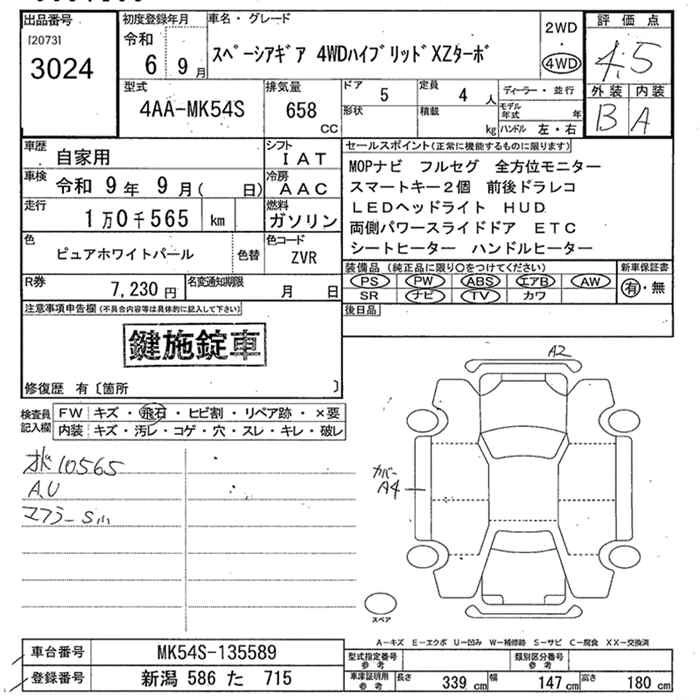 出品番号
[2073]
3024
初度登録年月
令和
6 9月
車名・グレード
スペーシアギア 4WDハイブリッドXZターボ
2WD
・
4WD
評価点
4.5
外装 内装
B A
型式
4AA-MK54S
排気量
658
cc
ドア
5
定員
4 人
形状
積載
kg
ディーラー・並行
モデル年式 年
ハンドル 左・右
車歴
自家用
シフト
IAT
車検
令和 9年 9月( 日)
冷房
AAC
走行
1万0千565 km
燃料
ガソリン
色
ピュアホワイトパール
色替
色コード
ZVR
R券
7,230円
名変通知期限
月 日
セールスポイント(正常に機能するものに限ります)
MOPナビ フルセグ 全方位モニター
スマートキー2個 前後ドラレコ
LEDヘッドライト HUD
両側パワースライドドア ETC
シートヒーター ハンドルヒーター
装備品(純正品に限り○をつけてください)
PS PW ABS エアB AW
SR ナビ TV カワ
新車保証書
有・無
後日品
注意事項申告欄(不具合内容等は具体的に記入して下さい)
鍵施錠車
修復歴 有〔箇所 〕
検査員
記入欄
FW キズ・飛石・ヒビ割・リペア跡・×要
内装 キズ・汚レ・コゲ・穴・スレ・キレ・破レ
10565
A,U
マフラーS小
A2
カバー
A4
スペア
A-キズ E-エクボ U-凹み W-補修跡 S-サビ C-腐食 XX-交換済
車台番号
MK54S-135589
登録番号
新潟 586 た 715
型式指定番号
参考
類別区分番号
参考
車庫証明用
参考
長さ 339cm 幅 147cm 高さ 180cm